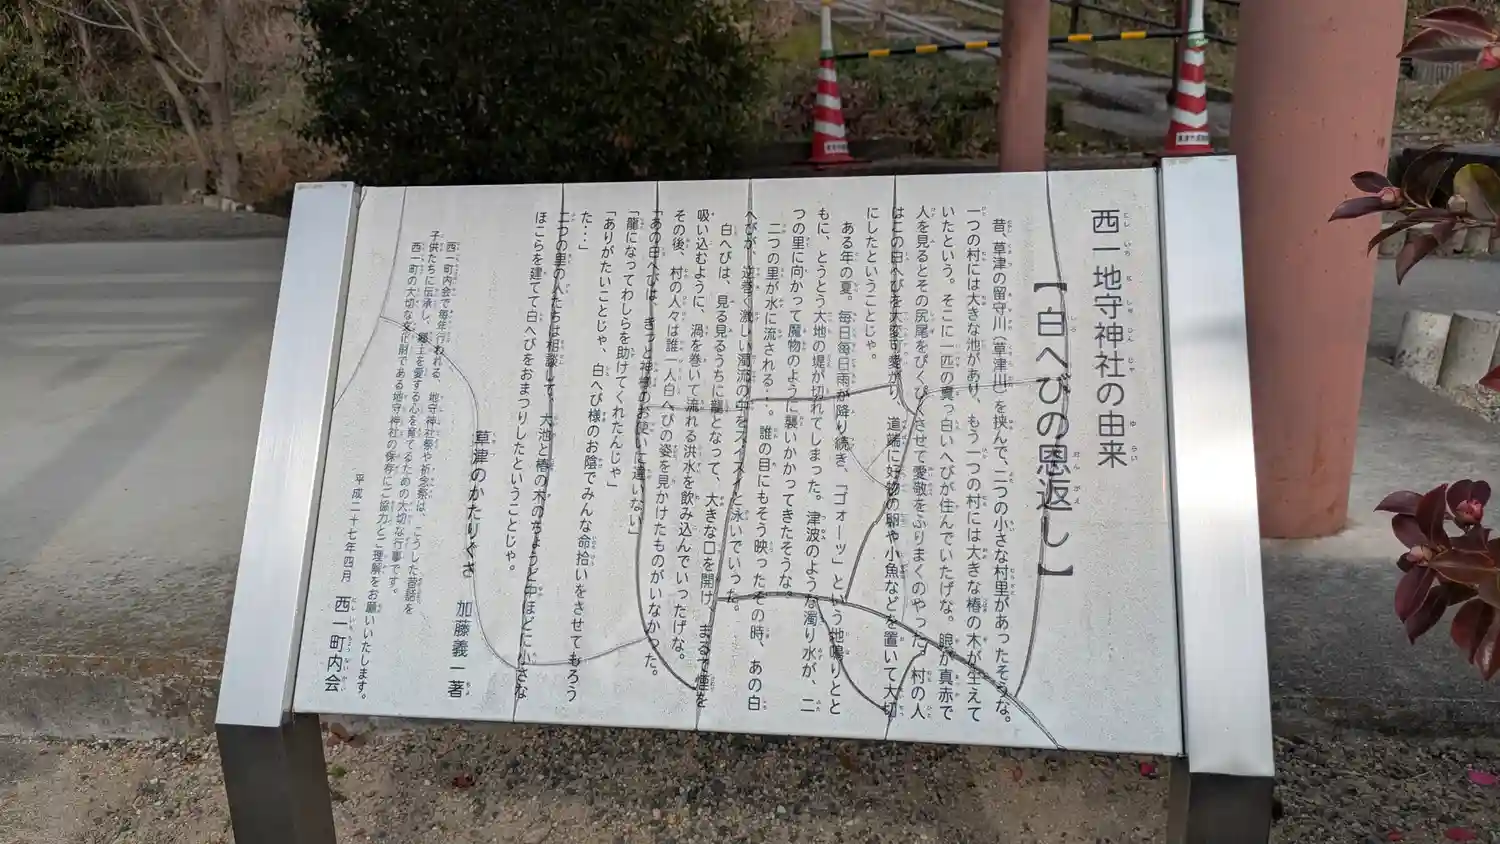 西一地守神社の由来
【白へびの恩返し】
昔、草津の留守川（草津川）を挟んで、二つの小さな村里があったそうな。
一つの村には大きな池があり、もう一つの村には大きな椿の木が生えて
いたという。そこに一匹の真っ白いへびが住んでいたげな。眼が真赤で
人を見るとその尻尾をぴくぴくさせて愛敬をふりまくのやった。村の人
はこの白へびを大変可愛がり、道端に好物の卵や小魚などを置いて大切
にしたということじゃ。
ある年の夏。毎日毎日雨が降り続き、「ゴォーッ」という地鳴りとと
もに、とうとう大地の堤が切れてしまった。津波のような濁り水が、二
つの里に向かって魔物のように襲いかかってきたそうな。
二つの里が水に流される・・。誰の目にもそう映ったその時、あの白
へびが、逆巻く激しい濁流の中をスイスイと泳いでいった。
白へびは、見る見るうちに龍となって、大きな口を開け、まるで煙を
吸い込むように、渦を巻いて流れる洪水を飲み込んでいったげな。
その後、村の人々は誰一人白へびの姿を見かけたものがいなかった。
「あの白へびは、きっと神様のお使いに違いない」
「龍になってわしらを助けてくれたんじゃ」
「ありがたいことじゃ、白へび様のお陰でみんな命拾いをさせてもろう
た・・」
二つの里の人たちは相談して、大池と椿の木のちょうど中ほどに小さな
ほこらを建てて白へびをおまつりしたということじゃ。
草津のかたりぐさ　加藤義一 著
西一町内会で毎年行われる、地守神社祭や祈念祭は、こうした昔話を
子供たちに伝承し、郷土を愛する心を育てるための大切な行事です。
西一町の大切な文化財である地守神社の保存にご協力とご理解をお願いいたします。
平成二十七年四月　西一町内会